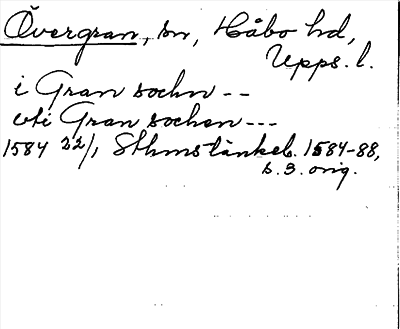 Övergran, sn, Håbo hd,
Upps. l.
i Gran sochn --
uti Gran sochen ---
1584 22/1 Sthms tänkeb. 1584-88,
s. 3. orig.